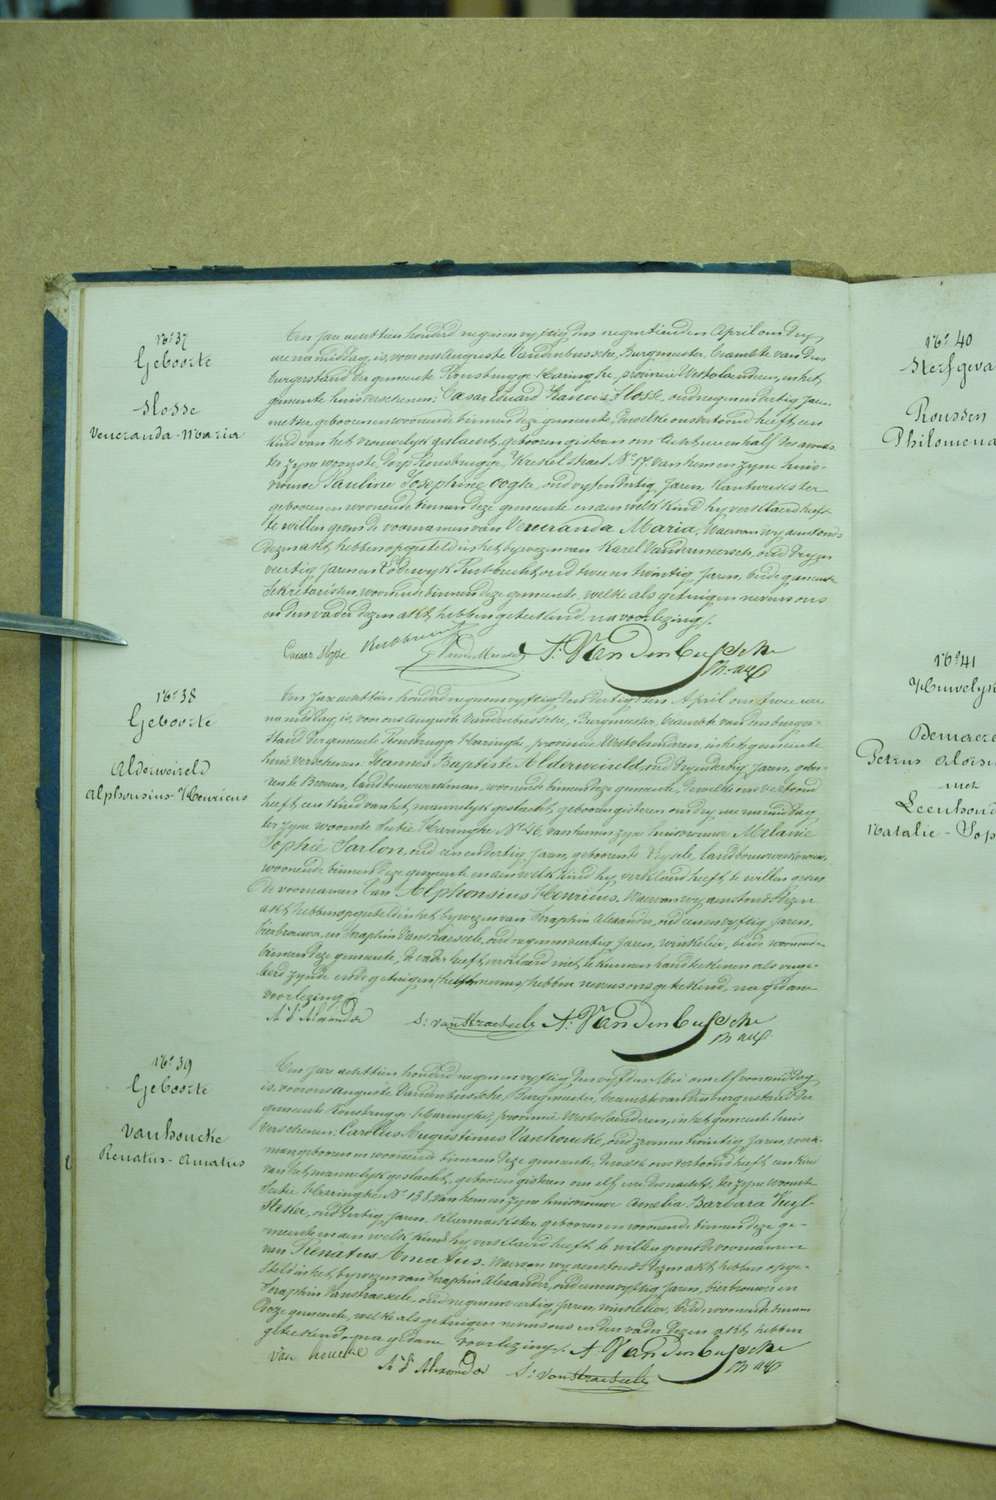 No 37
Geboorte
Hosse
Veneranda-Maria
Een Jaar achttien honderd negenenvyftig den negentienden April om dry
ure namiddag, is, voor ons Auguste Vandenbussche, Burgmeester, beambte van den
burgerstand der gemeente Rousbrugge-Haringhe, provincie Westvlaenderen, in het
gemeente huis verschenen: Caesar Eduard Francis Hosse, oud negenendertig Jaren
geboren en woonende binnen deze gemeente, Dewelke ons vertoond heeft een
kind van het vrouwelyk geslacht, geboren gisteren om acht ure en half des avonds
ter zyne woonste, Dorp Rousbrugge, N.o 17, van hem en zyne huis-
vrouw Pauline Josephine Cogke, oud vyfendertig Jaren, Kantwerkster
geboren en woonende binnen deze gemeente en aen welk kind hy verklaerd heeft
te willen geven de voornamen van Veneranda Maria, Waervan wy aenstonds
Dezen akt hebben opgesteld in het bywezen van Karel Vandermersch, oud dryen
veertig Jaren en Lodewyk Rubbrecht, oud twee en twintig Jaren, beide gemeente
Sekretarissen, woonende binnen deze gemeente, welke als getuigen nevens ons
en den vader Dezen akt hebben geteekend, na voorlezing.
Caesar Hosse Rubbrecht A. Vandenbussche
No 38
Geboorte
Alderweireld
Alphonsius Henricus
Een Jaar achttien honderd negenenvyftig den dertigsten April om twee ure
namiddag is, voor ons Auguste Vandenbussche, Burgmeester, beambte van den burger-
stand der gemeente Rousbrugge Haringhe, provincie Westvlaenderen, in het gemeente
huis verschenen Joannes Baptiste Alderweireld, oud Jaren, gebo-
ren te Beveren, landbouwwerkman, woonende binnen deze gemeente, Dewelke ons vertoond
heeft een kind van het mannelyk geslacht, geboren gisteren om dry ure namiddag
ter zyne woonste Sectie Haringhe No 46, van hem en zyne huisvrouw Melanie
Sophie Sarlon, oud een en dertig Jaren, geboren te Vysele, landbouwwerkvrouw,
woonende binnen deze gemeente en aen welk kind hy verklaerd heeft te willen geven
De voornamen van Alphonsius Henricus. Waervan wy aenstonds dezen
akt hebben opgesteld in het bywezen van Seraphin Alexander, oud een en vyftig Jaren,
bierbrouwer, en Seraphin Vanstraeseele, oud negenenveertig Jaren, winkelier, beide woonende
binnen deze gemeente, de vader heeft verklaerd niet te kunnen handteekenen als onge-
leerd zynde en de getuigen hebben nevens ons geteekend, na gedane
voorlezing
S: Vanstraeseele A. Vandenbussche
No 39
Geboorte
Vanhoucke
Renatus-Amatus
Een Jaar achttien honderd negenenvyftig den vyfden Mei om elf voormiddag,
is, voor ons Auguste Vandenbussche, Burgmeester, beambte van den burgerstand der
gemeente Rousbrugge Haringhe, provincie Westvlaenderen, in het gemeente huis
verschenen: Carolus Augustinus Vanhoucke, oud zeven en twintig Jaren, werk-
man geboren en woonende binnen deze gemeente, Dewelke ons vertoond heeft een kind
van het mannelyk geslacht, geboren gisteren om elf ure des nachts, ter zyne woonste
Sectie Haringhe No 138, van hem en zyne huisvrouw Amelia Barbara
oud dertig Jaren, geboren en woonende binnen deze ge-
meente en aen welk kind hy verklaerd heeft te willen geven de voornamen
van Renatus Amatus. Waervan wy aenstonds Dezen akt hebben opge-
steld in het bywezen van Seraphin Alexander, oud een en vyftig Jaren, bierbrouwer en
Seraphin Vanstraeseele, oud negenenveertig Jaren, winkelier, beide woonende binnen
Deze gemeente, welke als getuigen nevens ons en den vader Dezen akt hebben
geteekend, na gedane voorlezing. A. Vandenbussche
Van houcke
S: Vanstraeseele
No 40
Sterfgeva
Roussen
Philomena
No 41
Huwelyk
Demacre
Petrus Alois
met
Leenhour
Natalie-Sop